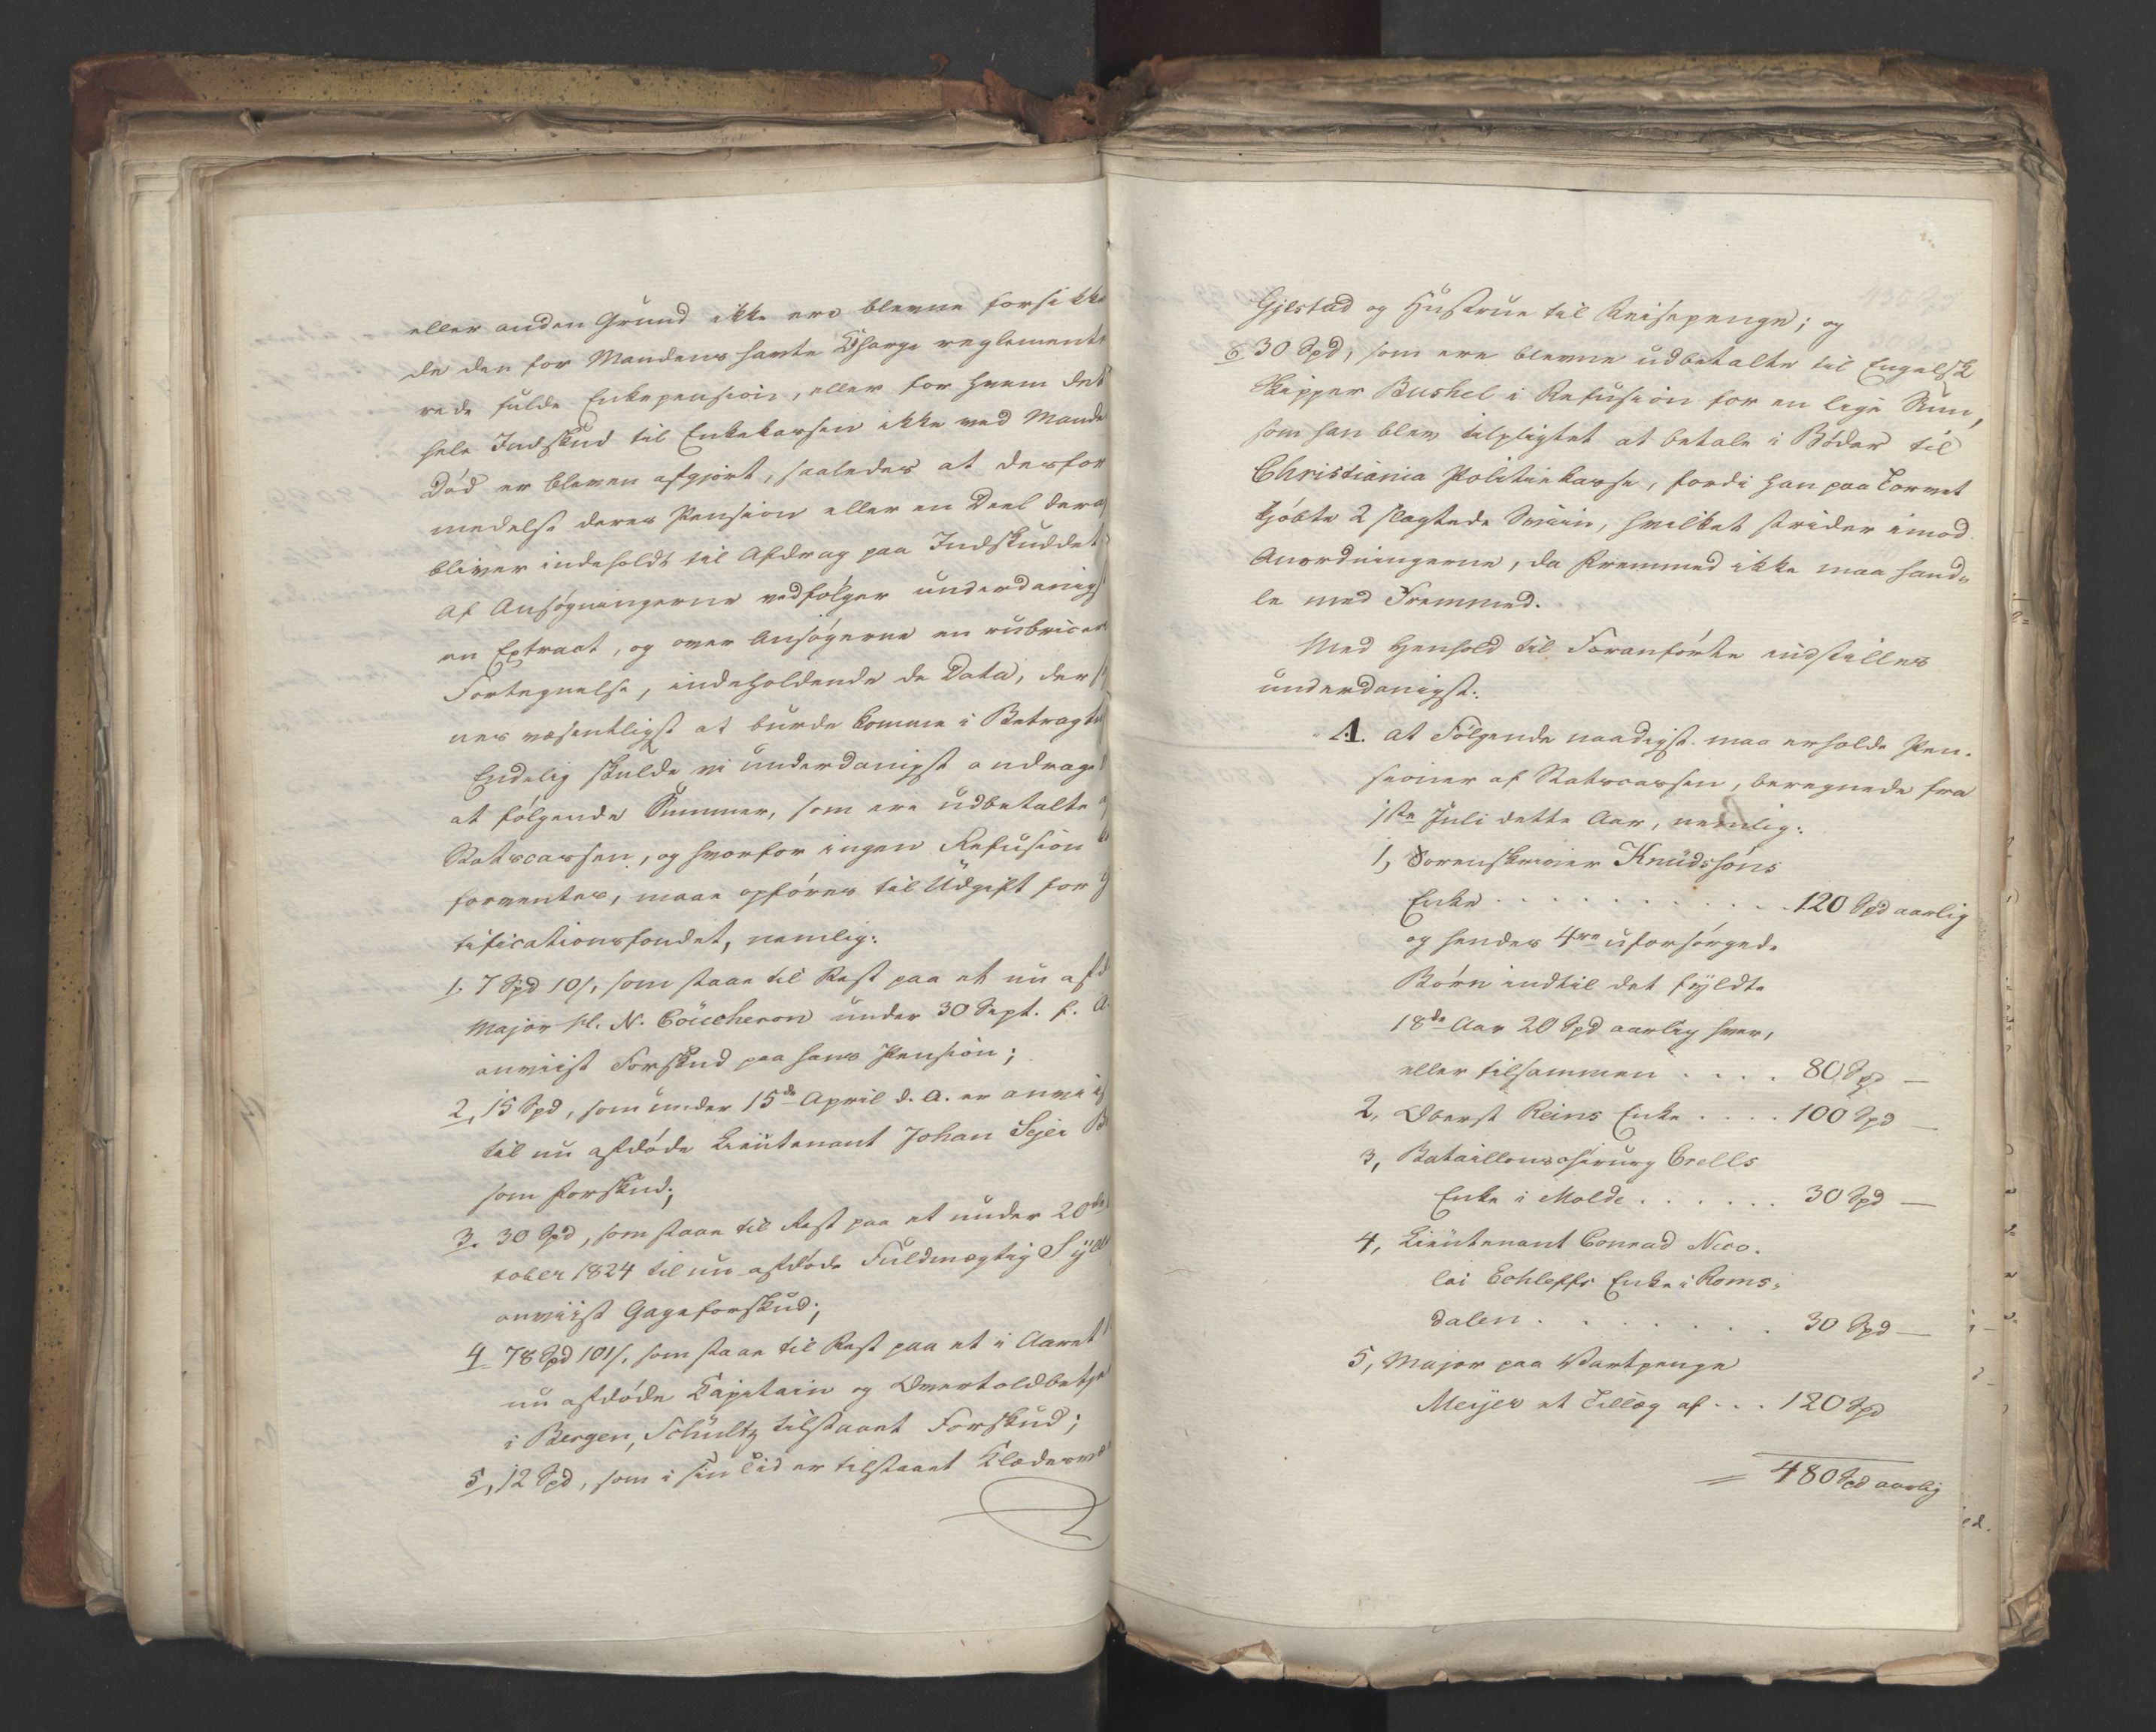 eller anden Grund ikke ere blevne forsikke
de den for Mandens havte Charge reglemente
rede fulde Enkepension, eller for hvem det
hele Indskud til Enkekassen ikke ved Mande
Död er bleven afgjort, saaledes at desfor
medelst deres Pension eller en Deel deraf
bliver indeholdt til Afdrag paa Indskuddet
Af Ansøgningerne vedfølger underdanigst
en Extract, og over Ansögerne en rubricer
Fortegnelse, indeholdende de Data, der
nes væsentligst at burde komme i Betragt
Endelig skulde vi underdanigst andrage
at fölgende Summer, som ere udbetalte
Statscassen, og hvorfor ingen Refusion
forventes, maae opföres til Udgift for
tificationsfondet, nemlig:
1. 7 Spd 10 s, som staae til Rest paa et nu afd
Major H. N. Coucheron under 30 Sept. f. A.
anviist Forskud paa hans Pension;
2, 15 Spd, som under 15de April d. A. er anvii
til nu afdöde Lieutenant Johan Sejer
som Forskud;
3. 30 Spd, som staae til Rest paa et under 20de
tober 1824 til nu afdöde Fuldmægtig
anviist Gageforskud;
4 78 Spd 101 s, som staae til Rest paa et i Aaret
nu afdöde Capitain og Overtoldbetje
i Bergen, Schultz tilstaaet Forskud;
5, 12 Spd, som i sin Tid er tilstaaet Klædes
Gjestad og Hustrue til Reisepenge; og
6 30 Spd, som ere blevne udbetalte til Engelsk
Skipper Bushel i Refusion for en lige Sum,
som han blev tilpligtet at betale i Böder til
Christiania Politiekasse, fordi han paa Torvet
kjöbte 2 slagtede Sviin, hvilket strider imod
Anordningerne, da Fremmed ikke maa hand-
le med Fremmed.
Med Henhold til Foranförte indstilles
underdanigst:
A. at Fölgende naadigst maa erholde Pen-
sioner af Statscassen, beregnede fra
1ste Juli dette Aar, nemlig:
1, Sorenskriver Knudssöns
Enke . . . . . . . . . . . 120 Spd aarlig
og hendes 4re uforsörgede
Börn indtil det fyldte
18de Aar 20 Spd aarlig hver,
eller tilsammen . . . . 80 Spd —
2, Oberst Reins Enke . . . . 100 Spd —
3, Bataillonschirurg Crells
Enke i Molde . . . . . . 30 Spd —
4, Lieutenant Conrad Nico-
lai Eehleffs Enke i Roms-
dalen . . . . . . . . 30 Spd —
5, Major paa Vartpenge
Meyer et Tillæg af . . . 120 Spd
= 480 Spd aarlig